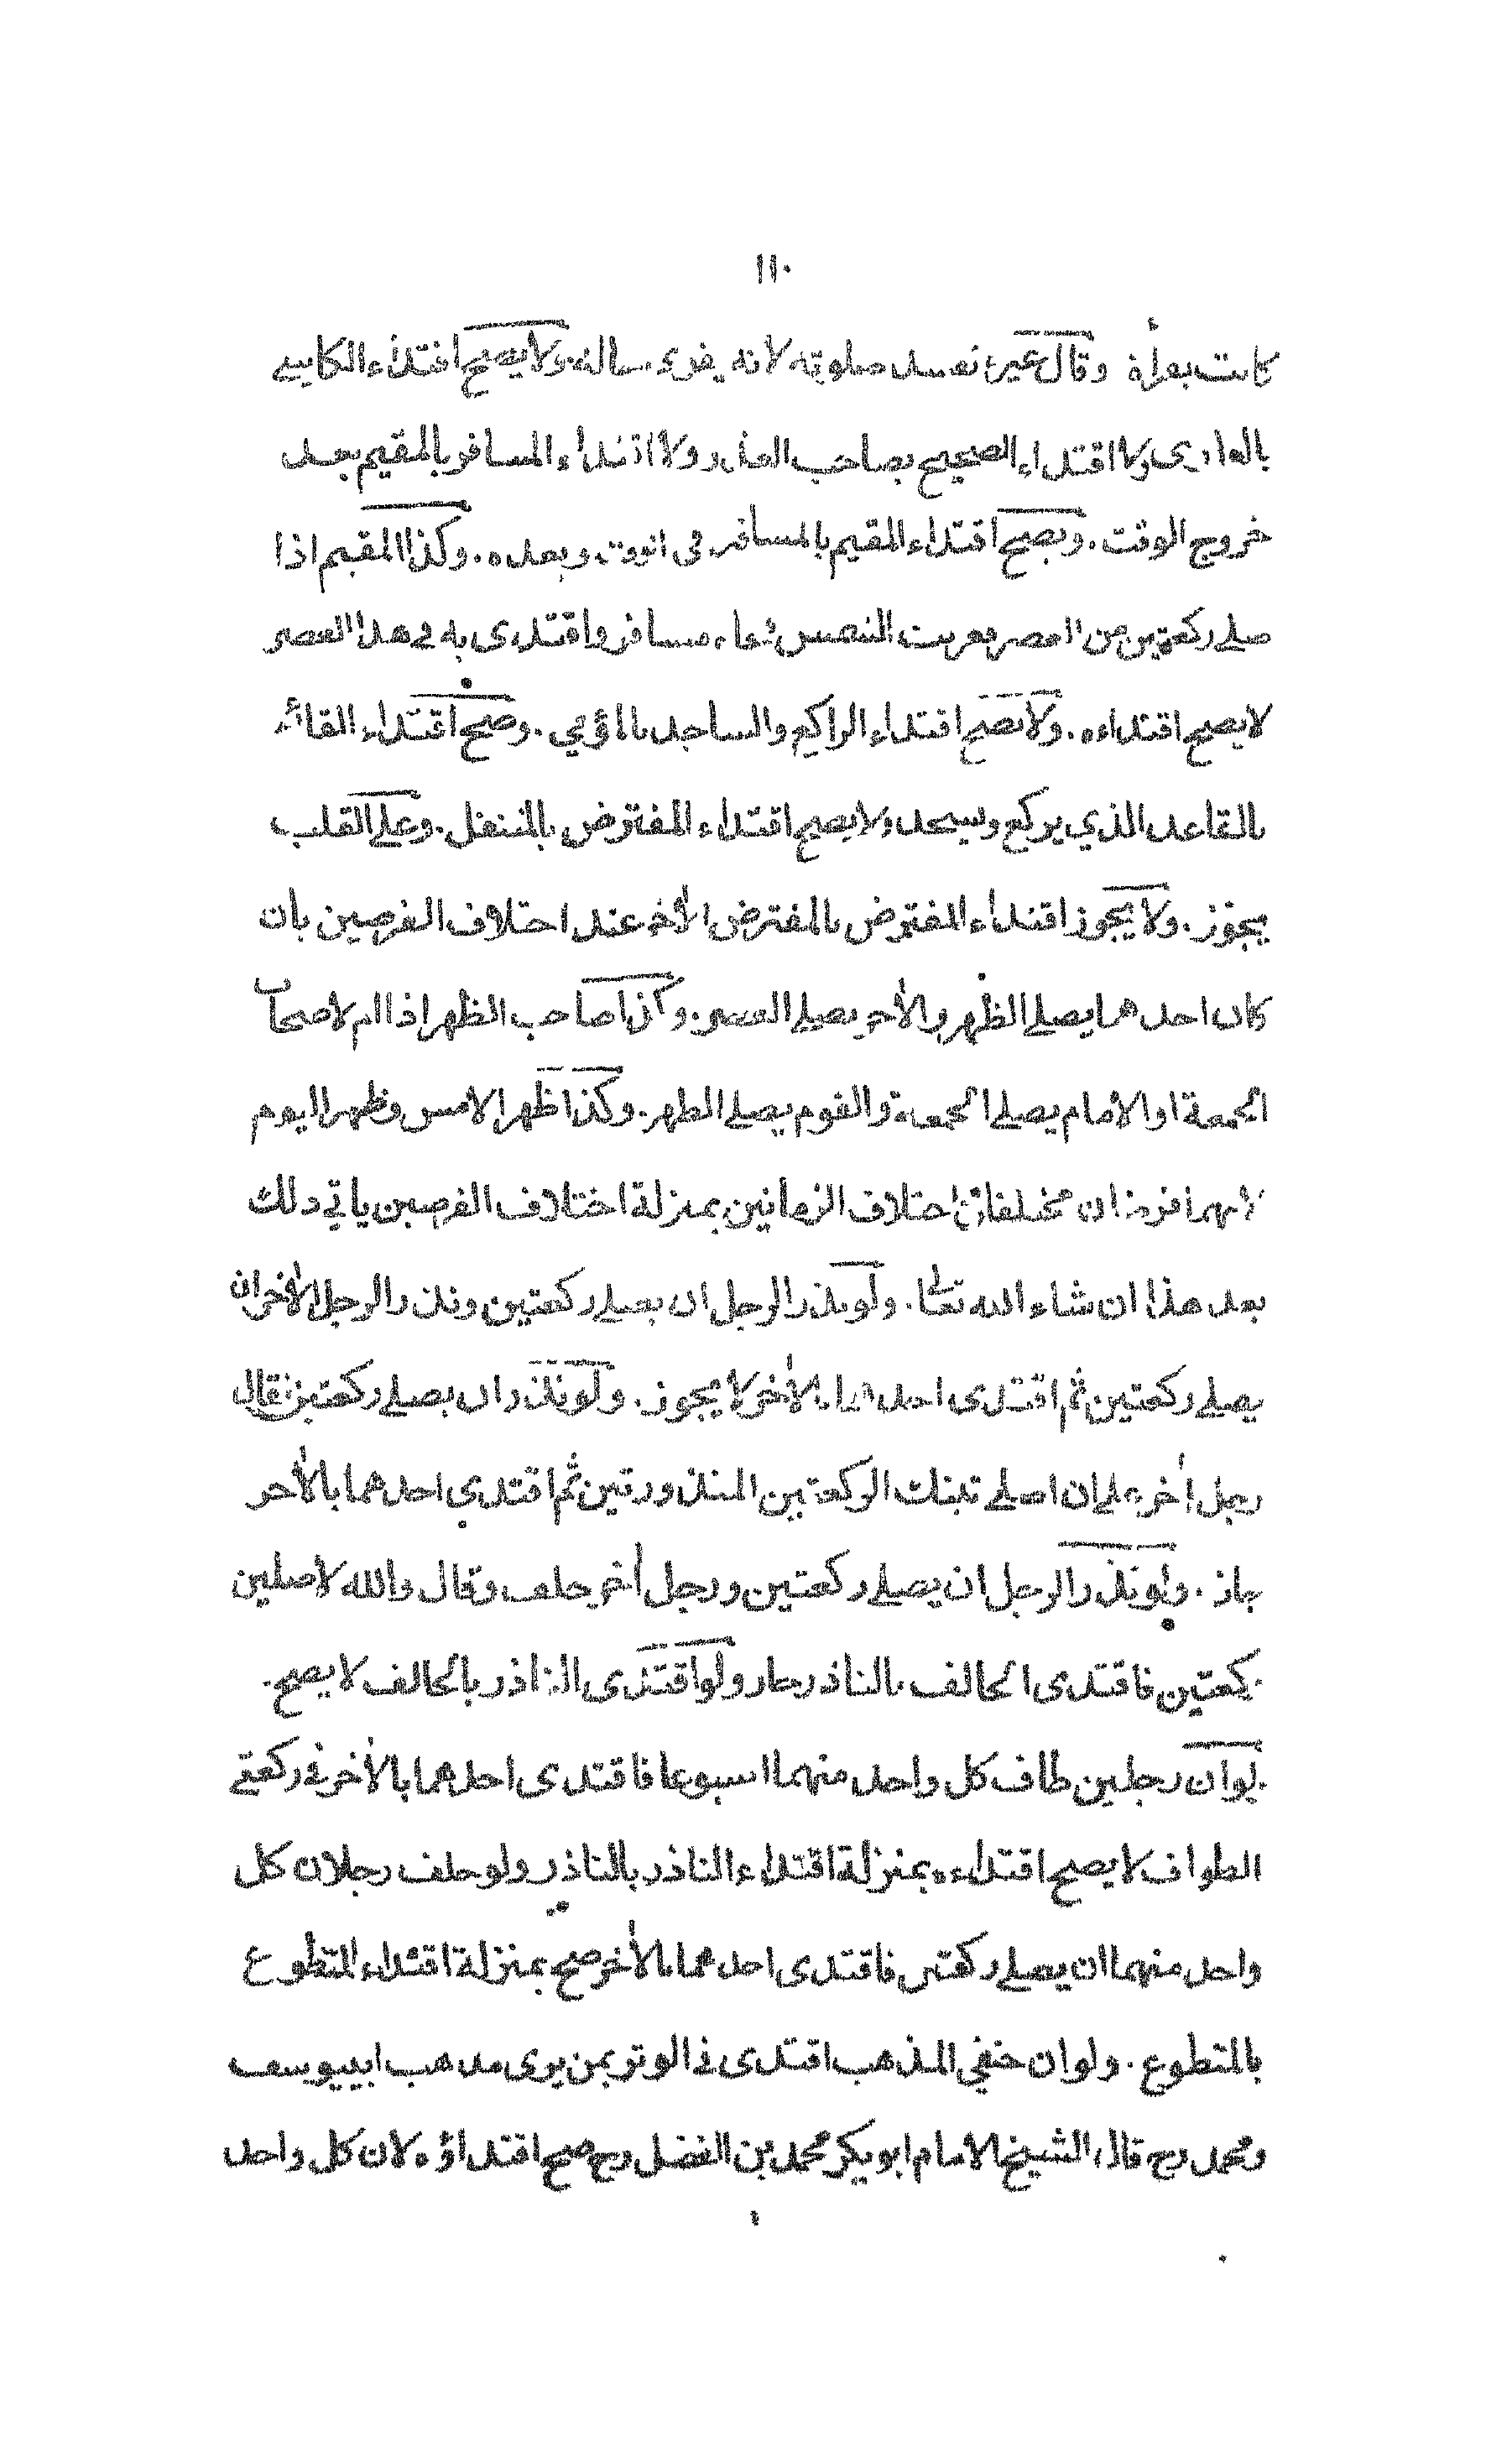 ١١٠
كانت بقرأة وقال غيره تفسد صلوته لانه يقوى حاله. ولا يصح اقتداء الكاسي
بالعاري ولا اقتداء الصحيح بصاحب العذر ولا اقتداء المسافر بالمقيم بعد
خروج الوقت. ويصح اقتداء المقيم بالمسافر في الوقت وبعده. وكذا المقيم اذا
صلى ركعتين من العصر فغربت الشمس فجاء مسافر واقتدى به في هذا العصر
لا يصح اقتداءه. ولا يصح اقتداء الراكع والساجد بالمؤمي. وصح اقتداء القائم
بالقاعد الذي يركع ويسجد ولا يصح اقتداء المفترض بالمتنفل. وعلى القلب
يجوز. ولا يجوز اقتداء المفترض بالمفترض الأخر عند اختلاف الفرضين بان
كان احدهما يصلي الظهر والأخر يصلي العصر. وكذا صاحب الظهر اذا ام لاصحاب
الجمعة او الامام يصلي الجمعة والقوم يصلي الظهر. وكذا ظهر الامس وظهر اليوم
لانهما فرضان مختلفان واختلاف الزمانين بمنزلة اختلاف الفرضين ياتي ذلك
بعد هذا ان شاء الله تعالى. ولو نذر الرجل ان يصلي ركعتين ونذر الرجل الأخر ان
يصلي ركعتين ثم اقتدى احدهما بالأخر لا يجوز. ولو نذر ان يصلي ركعتين فقال
رجل أخر علي ان اصلي تينك الركعتين المنذورتين ثم اقتدي احدهما بالأخر
جاز. ولو نذر الرجل ان يصلي ركعتين ورجل أخر حلف وقال والله لاصلين
ركعتين فاقتدى الحالف بالناذر جاز ولو اقتدى الناذر بالحالف لا يصح.
ولو ان رجلين طاف كل واحد منهما اسبوعا فاقتدى احدهما بالأخر في ركعتي
الطواف لا يصح اقتداءه بمنزلة اقتداء الناذر بالناذر ولو حلف رجلان كل
واحد منهما ان يصلي ركعتين فاقتدى احدهما بالأخر صح بمنزلة اقتداء المتطوع
بالمتطوع. ولو ان حنفي المذهب اقتدى في الوتر بمن يرى مذهب ابييوسف
ومحمد رح قال الشيخ الامام ابو بكر محمد بن الفضل رح صح اقتداؤه لان كل واحد